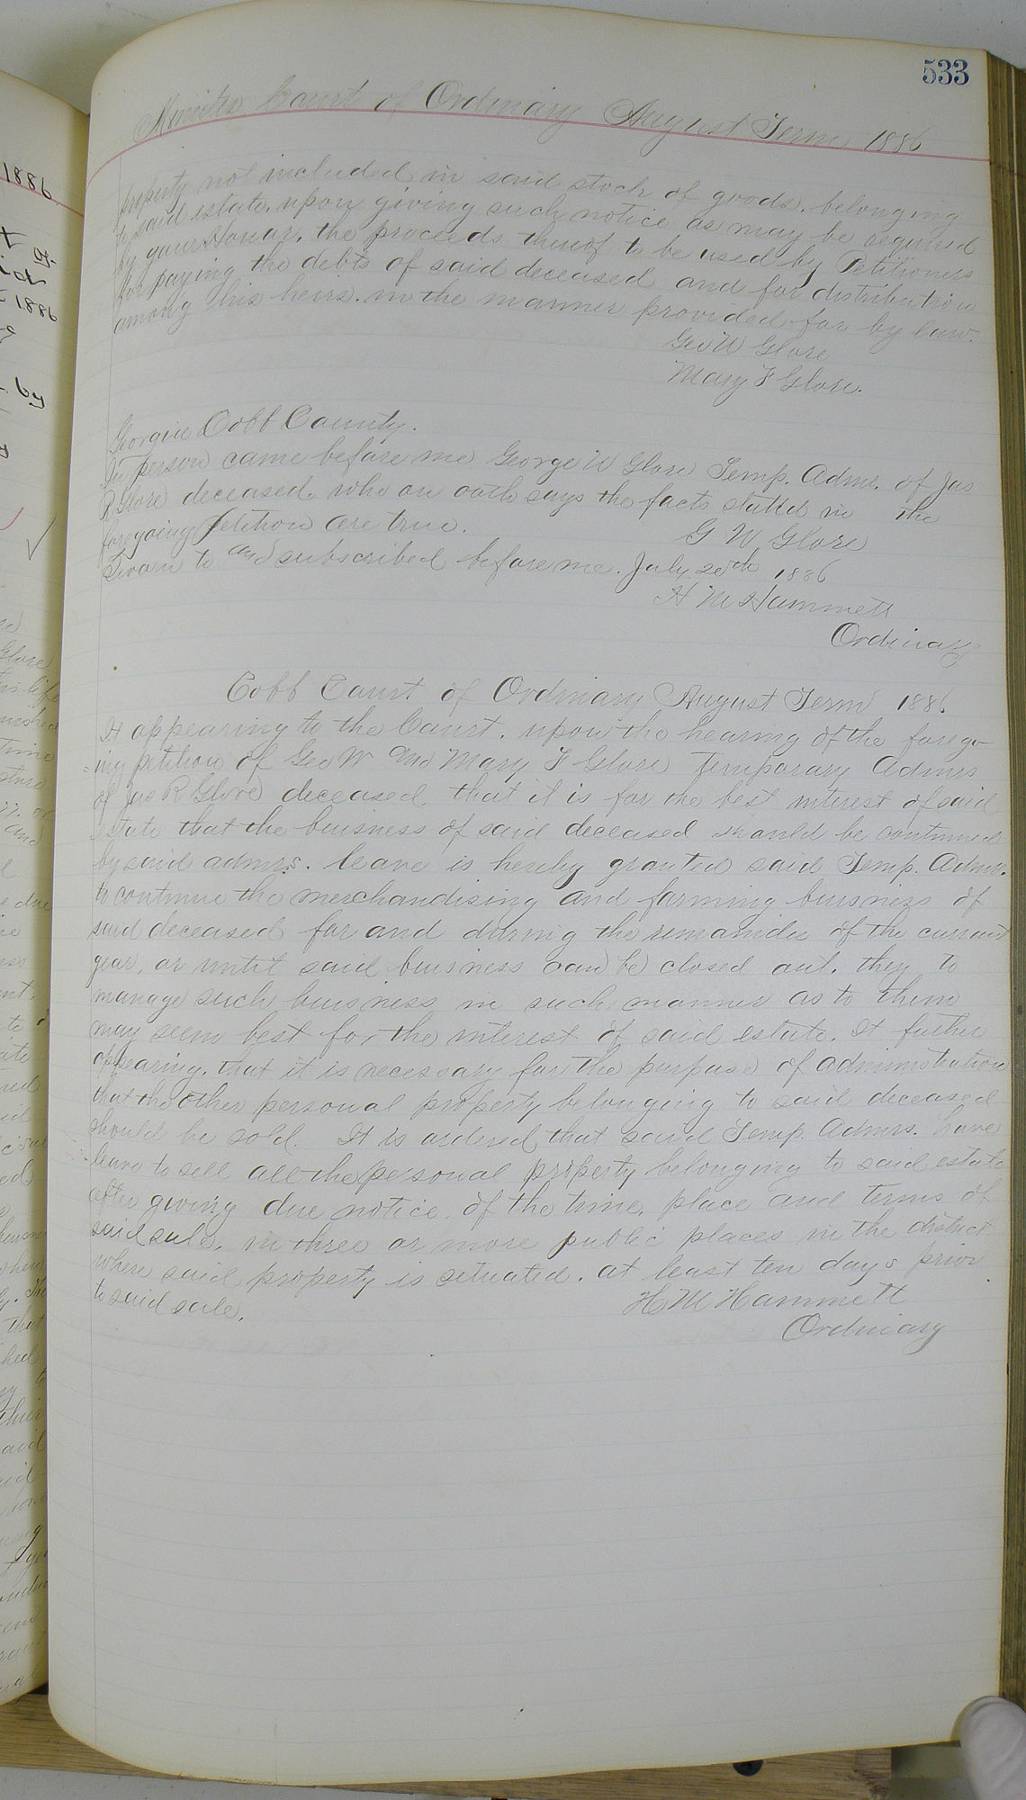 533
Minutes Court of Ordinary August Term 1886
property not included in said stock of goods, belonging
to said estate, upon giving such notice as may be required
by your Honor, the proceeds thereof to be used by Petitioners
for paying the debts of said deceased and for distribution
among his heirs in the manner provided for by law.
Geo W Glore
Mary F Glore.
Georgia Cobb County.
In person came before me George W Glore Temp. Admr. of Jas
R Glore deceased, who on oath says the facts stated in the
foregoing Petition are true.
G W Glore
Sworn to and subscribed before me. July 20th 1886
H M Hammett
Ordinary
Cobb Court of Ordinary August Term 1886
It appearing to the Court, upon the hearing of the forego-
ing petition of Geo W and Mary F Glore Temporary Admrs
of Jas R Glore deceased that it is for the best interest of said
estate that the buisness of said deceased should be continued
by said admrs. leave is hereby granted said Temp. Admrs.
to continue the merchandising and farming buisness of
said deceased for and during the remainder of the current
year, or until said buisness can be closed out, they to
manage such buisness in such manner as to them
may seem best for the interest of said estate. It further
appearing, that it is necessary for the purpose of administration
that the other personal property belonging to said deceased
should be sold. It is ordered that said Temp. Admrs. have
leave to sell all the personal property belonging to said estate
after giving due notice of the time, place and terms of
said sale, in three or more public places in the district
where said property is situated, at least ten days prior
to said sale.
H M Hammett
Ordinary
1886
by